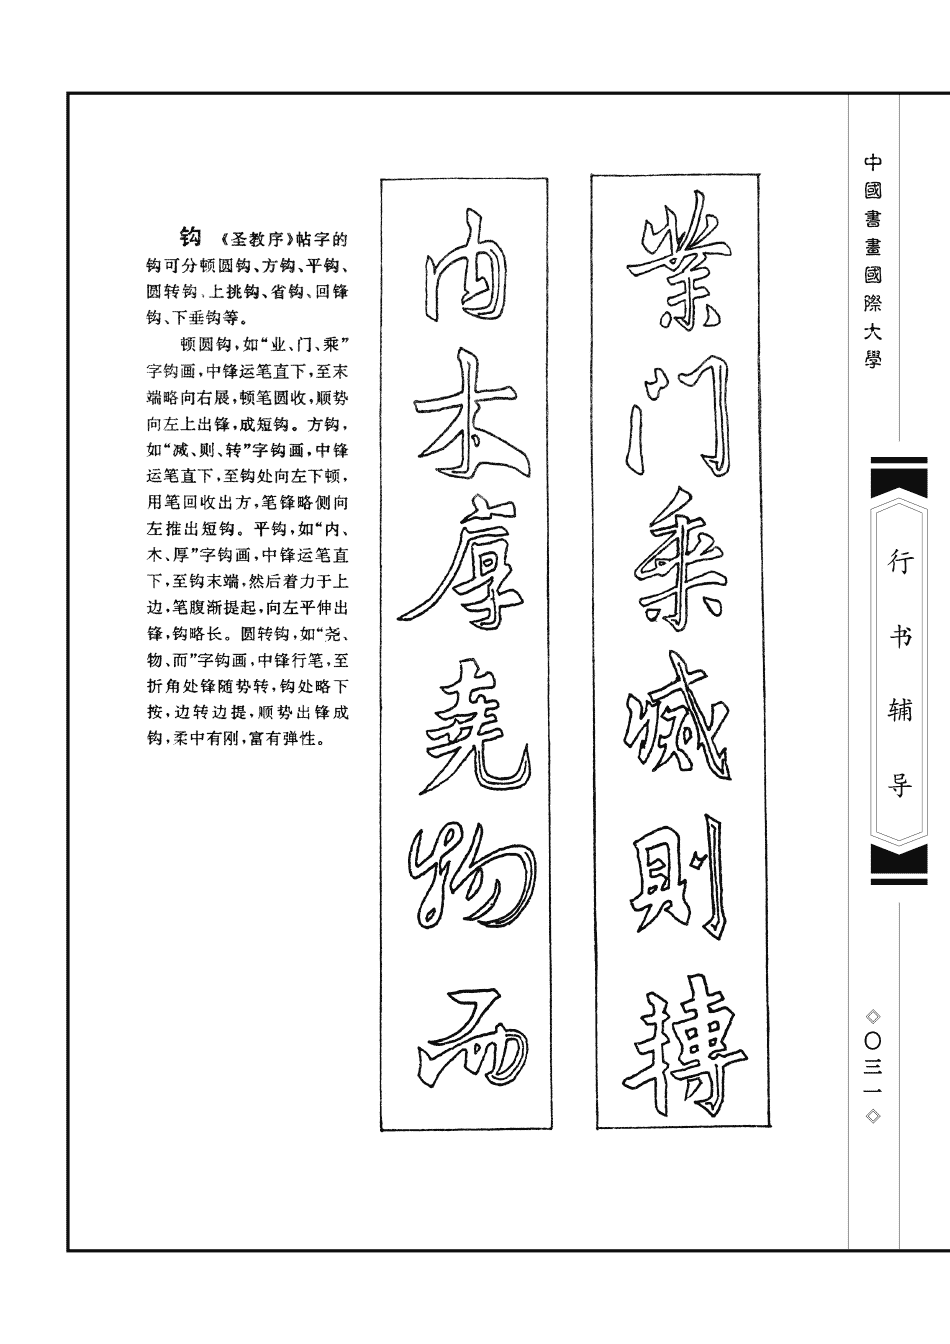 钩 《圣教序》帖字的
钩可分顿圆钩、方钩、平钩、
圆转钩、上挑钩、省钩、回锋
钩、下垂钩等。
顿圆钩,如“业、门、乘”
字钩画,中锋运笔直下,至末
端略向右展,顿笔圆收,顺势
向左上出锋,成短钩。方钩,
如“减、则、转”字钩画,中锋
运笔直下,至钩处向左下顿,
用笔回收出方,笔锋略侧向
左推出短钩。平钩,如“内、
木、厚”字钩画,中锋运笔直
下,至钩末端,然后着力于上
边,笔腹渐提起,向左平伸出
锋,钩略长。圆转钩,如“尧、
物、而”字钩画,中锋行笔,至
折角处锋随势转,钩处略下
按,边转边提,顺势出锋成
钩,柔中有刚,富有弹性。
業门乘减則摶
内木厚堯物而
中國書畫國際大學
行书辅导
◇〇三一◇